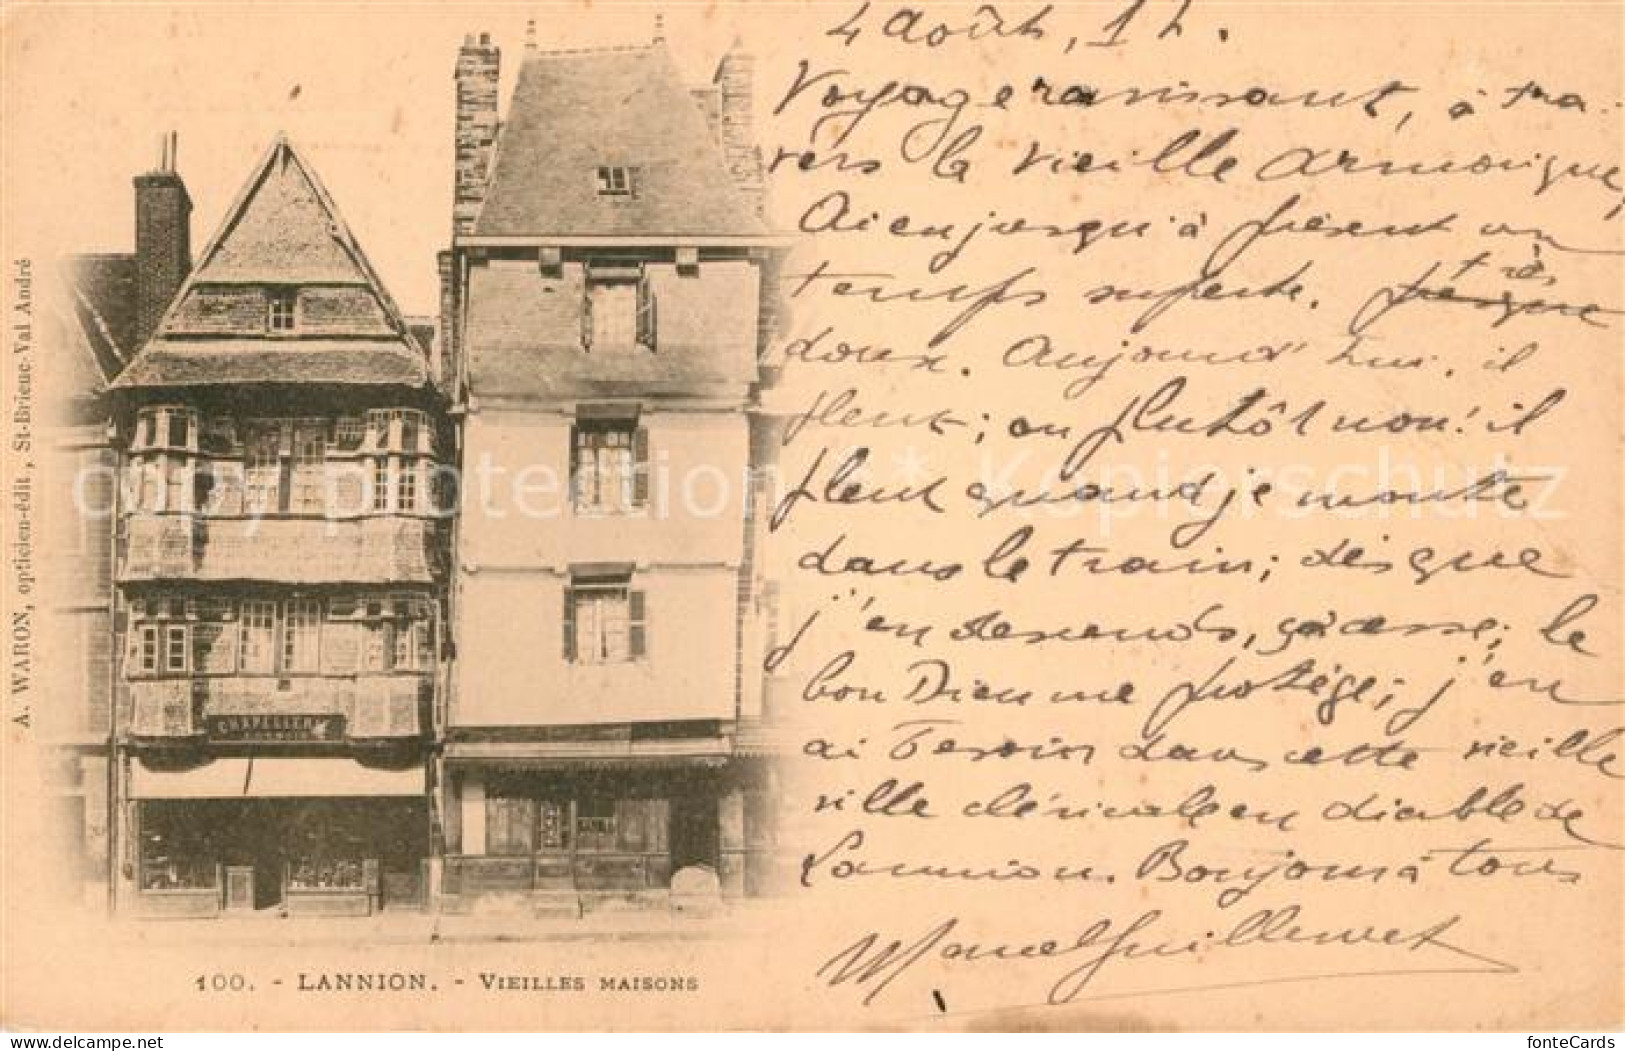 4 Août, 12.
Voyage ravissant, à tra-
vers la vieille Armorique,
Ai eu jusqu'à présent un
temps superbe. presque très
doux. Aujourd'hui, il
pleut; ou plutôt non! il
pleut quand je monte
dans le train; dès que
j'en descends, ça cesse; le
bon Dieu me protège; j'en
ai besoin dans cette vieille
ville cléricale en diable de
Lannion. Bonjour à tous
Marcel Guillemet
A. WARON, opticien-édit, St-Brieuc-Val André
CHAPELLERIE
100. - LANNION. - VIEILLES MAISONS
copy protection * Kopierschutz
www.delcampe.net
fonteCards